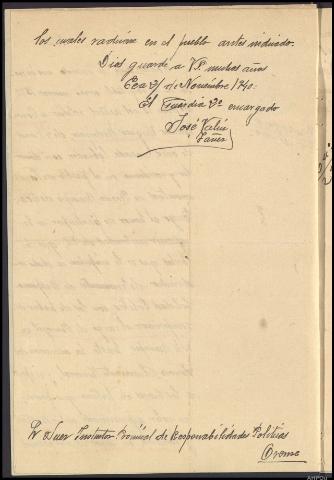 los cuales radican en el pueblo antes indicado.
Dios guarde a V.S. muchos años
Cea 21 de Noviembre 1940.
El Guardia 2º encargado
José Valin
Sr Juez Instructor Provincial de Responsabilidades Politicas
Orense